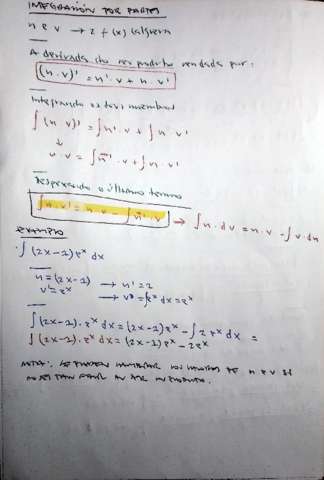 INTEGRACIÓN POR PARTES
u e v → 2 f(x) calquera
A derivada do seu produto ven dada por:
(u·v)' = u'·v + u·v'
Integrando os dous membros
∫(u·v)' = ∫u'·v + ∫u·v'
↓
u·v = ∫u'·v + ∫u·v'
Despexando o último termo
∫u·v' = u·v - ∫u'·v → ∫u·dv = u·v - ∫v·du
EXEMPLO
∫(2x-1)e^x dx
u = (2x-1) → u' = 2
v' = e^x → v = ∫e^x dx = e^x
∫(2x-1)·e^x dx = (2x-1)e^x - ∫2e^x dx =
∫(2x-1)·e^x dx = (2x-1)e^x - 2e^x
NOTA: se poden os de u e v se